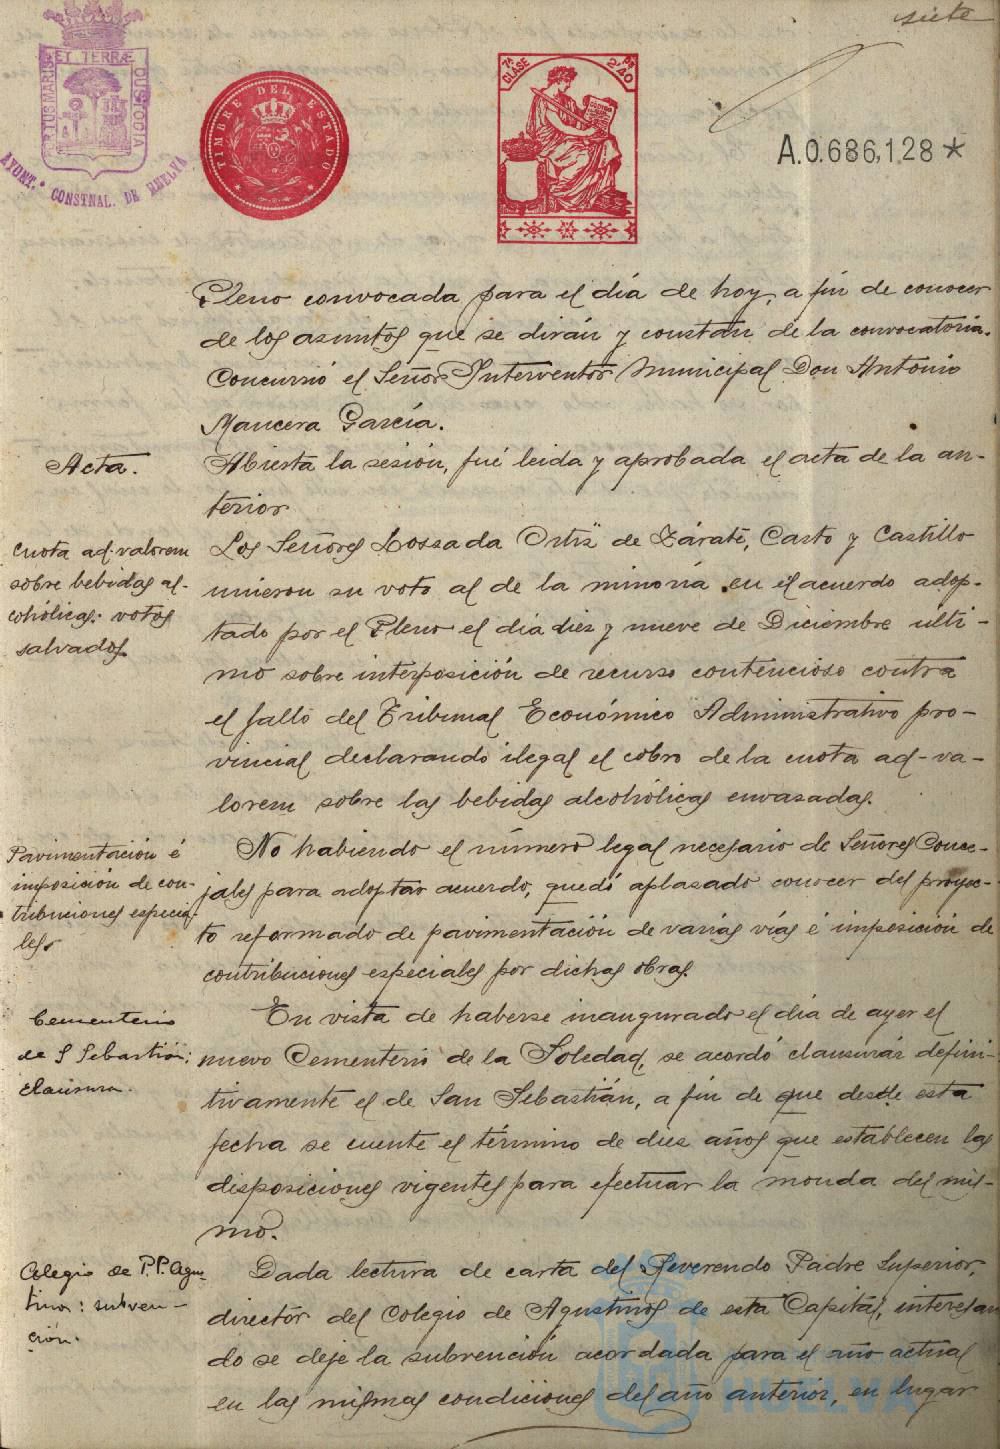 siete
PORTUS MARIS ET TERRÆ CUSTODIA
AYUNT. CONSTNAL. DE HUELVA
TIMBRE DEL ESTADO
7ª CLASE
2'40
A.0.686,128*
Pleno convocada para el día de hoy, a fin de conocer
de los asuntos que se dirán y constan de la convocatoria.
Concurrió el Señor Interventor Municipal Don Antonio
Mancera García.
Acta.
Abierta la sesión, fué leida y aprobada el acta de la an-
terior
Cuota ad-valorem
sobre bebidas al-
cohólicas: votos
salvados.
Los Señores Lossada Ortiz de Zárate, Casto y Castillo
unieron su voto al de la minoría en el acuerdo adop-
tado por el Pleno el día diez y nueve de Diciembre últi-
mo sobre interposición de recurso contencioso contra
el fallo del Tribunal Económico Administrativo pro-
vincial declarando ilegal el cobro de la cuota ad-va-
lorem sobre las bebidas alcohólicas envasadas.
Pavimentación é
imposición de con-
tribuciones especia-
les.
No habiendo el número legal necesario de Señores Conce-
jales para adoptar acuerdo, quedó aplasado conocer del proyec-
to reformado de pavimentación de varias vías é imposición de
contribuciones especiales por dichas obras.
Cementerio
de S Sebastián:
clausura.
En vista de haberse inaugurado el día de ayer el
nuevo Cementerio de la Soledad, se acordó clausurar defini-
tivamente el de San Sebastián, a fin de que desde esta
fecha se cuente el término de diez años que establecen las
disposiciones vigentes para efectuar la monda del mis-
mo.
Colegio de P.P. Agus-
tinos: subven-
ción.
Dada lectura de carta del Reverendo Padre Superior,
director del Colegio de Agustinos de esta Capital, interesan
do se deje la subvención acordada para el año actual
en las mismas condiciones del año anterior, en lugar
HUELVA